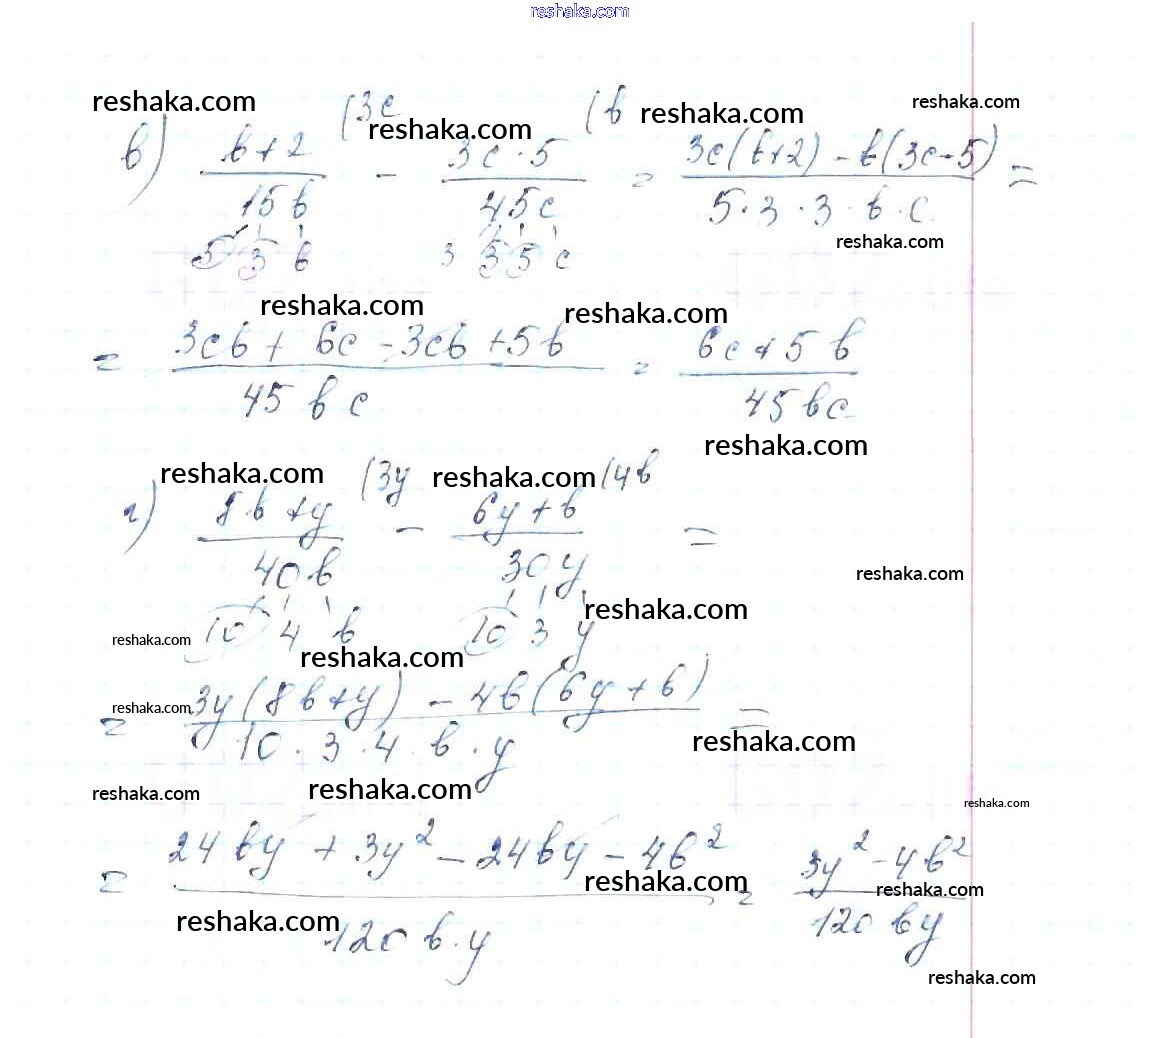 reshaka.com
reshaka.com (3c reshaka.com (b reshaka.com reshaka.com
в) b+2/15b - 3c·5/45c = 3c(b+2)-b(3c-5)/5·3·3·b·c =
5 3 b 3 3 5 c reshaka.com
reshaka.com reshaka.com
= 3cb+6c-3cb+5b/45bc = 6c+5b/45bc
reshaka.com
reshaka.com (3y reshaka.com (4b
г) 8b+y/40b - 6y+b/30y =
reshaka.com
reshaka.com
reshaka.com 10 4 b 10 3 y
reshaka.com
reshaka.com
= 3y(8b+y)-4b(6y+b)/10·3·4·b·y =
reshaka.com
reshaka.com reshaka.com reshaka.com
= 24by+3y²-24by-4b²/120b·y = 3y²-4b²/120by
reshaka.com reshaka.com
reshaka.com
reshaka.com